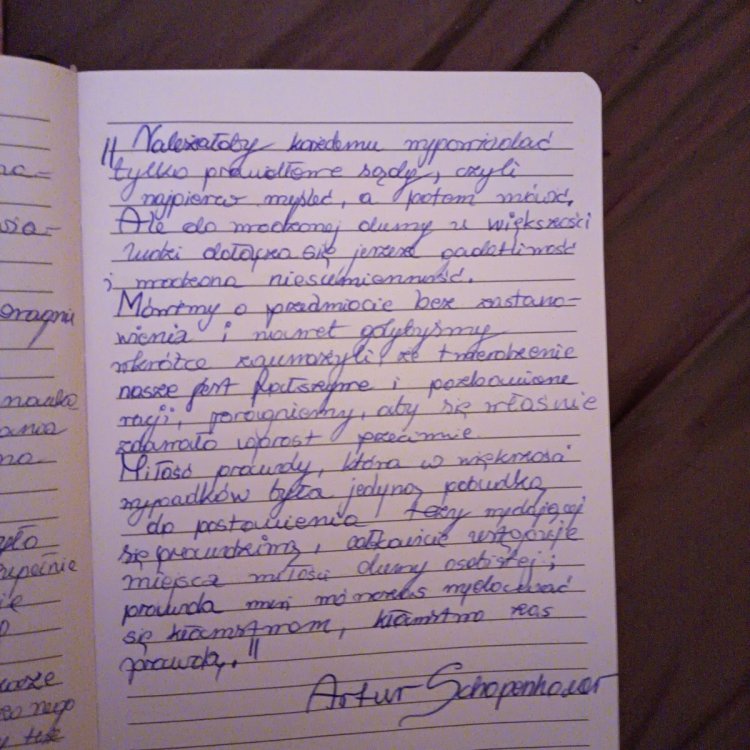 "Należałoby każdemu wypowiadać
tylko prawidłowe sądy, czyli
najpierw myśleć, a potem mówić.
Ale do wrodzonej dumy u większości
ludzi dołącza się jeszcze gadatliwość
i wrodzona niesumienność.
Mówimy o przedmiocie bez zastano-
wienia i nawet gdybyśmy
wkrótce zauważyli, że twierdzenie
nasze jest fałszywe i pozbawione
racji, pragniemy, aby się właśnie
zdawało wprost przeciwnie.
Miłość prawdy, która w większości
wypadków była jedyną pobudką
do postawienia tezy wydającej
się prawdziwą, całkowicie ustępuje
miejsca miłości dumy osobistej;
prawda musi wówczas wydawać
się kłamstwem, kłamstwo zaś
prawdą."
Artur Schopenhauer
na-
sia-
pragnie
nauka
ania
na
ępło
zupełnie
nie
o
wasze
nego
y też